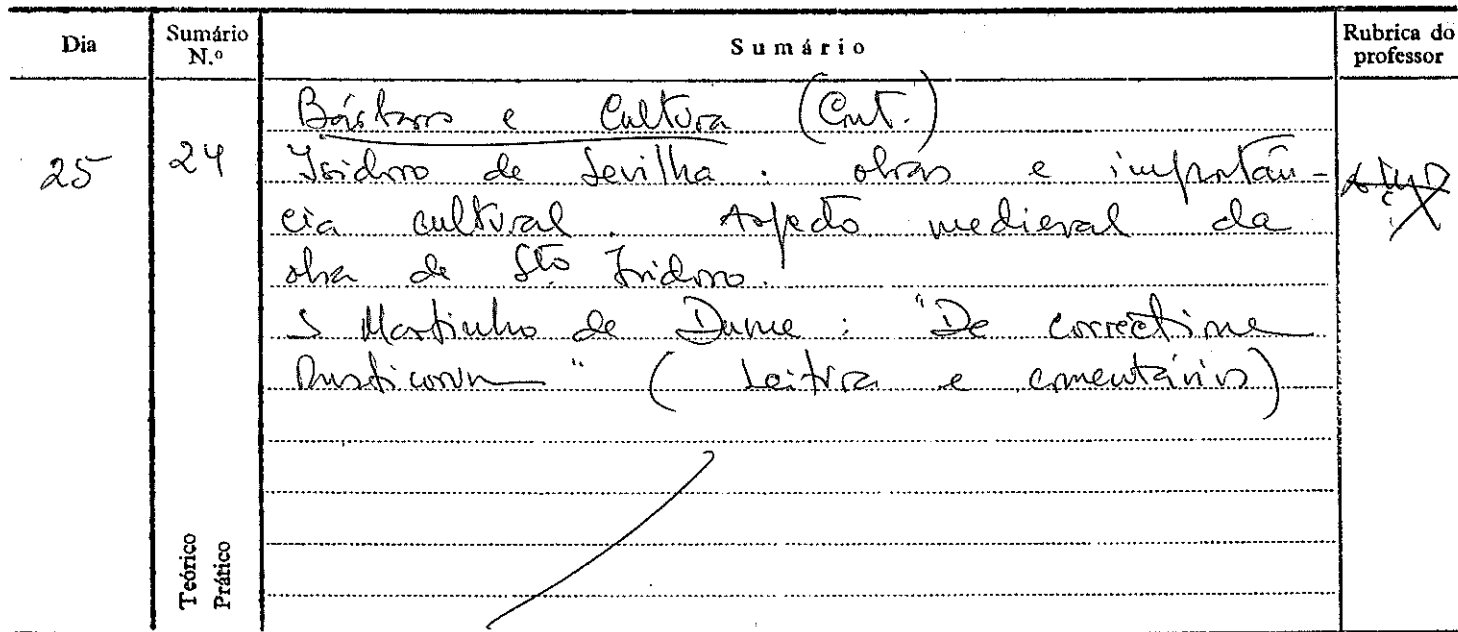 Dia
Sumário N.º
Sumário
Rubrica do professor
25
24
Bárbaros e Cultura (Cont.)
Isidoro de Sevilha: obras e importân-
cia cultural. Aspecto medieval da
obra de Sto Isidoro.
S Martinho de Dume: "De correctione
Rusticorum" (Leitura e comentários)
Teórico
Prático